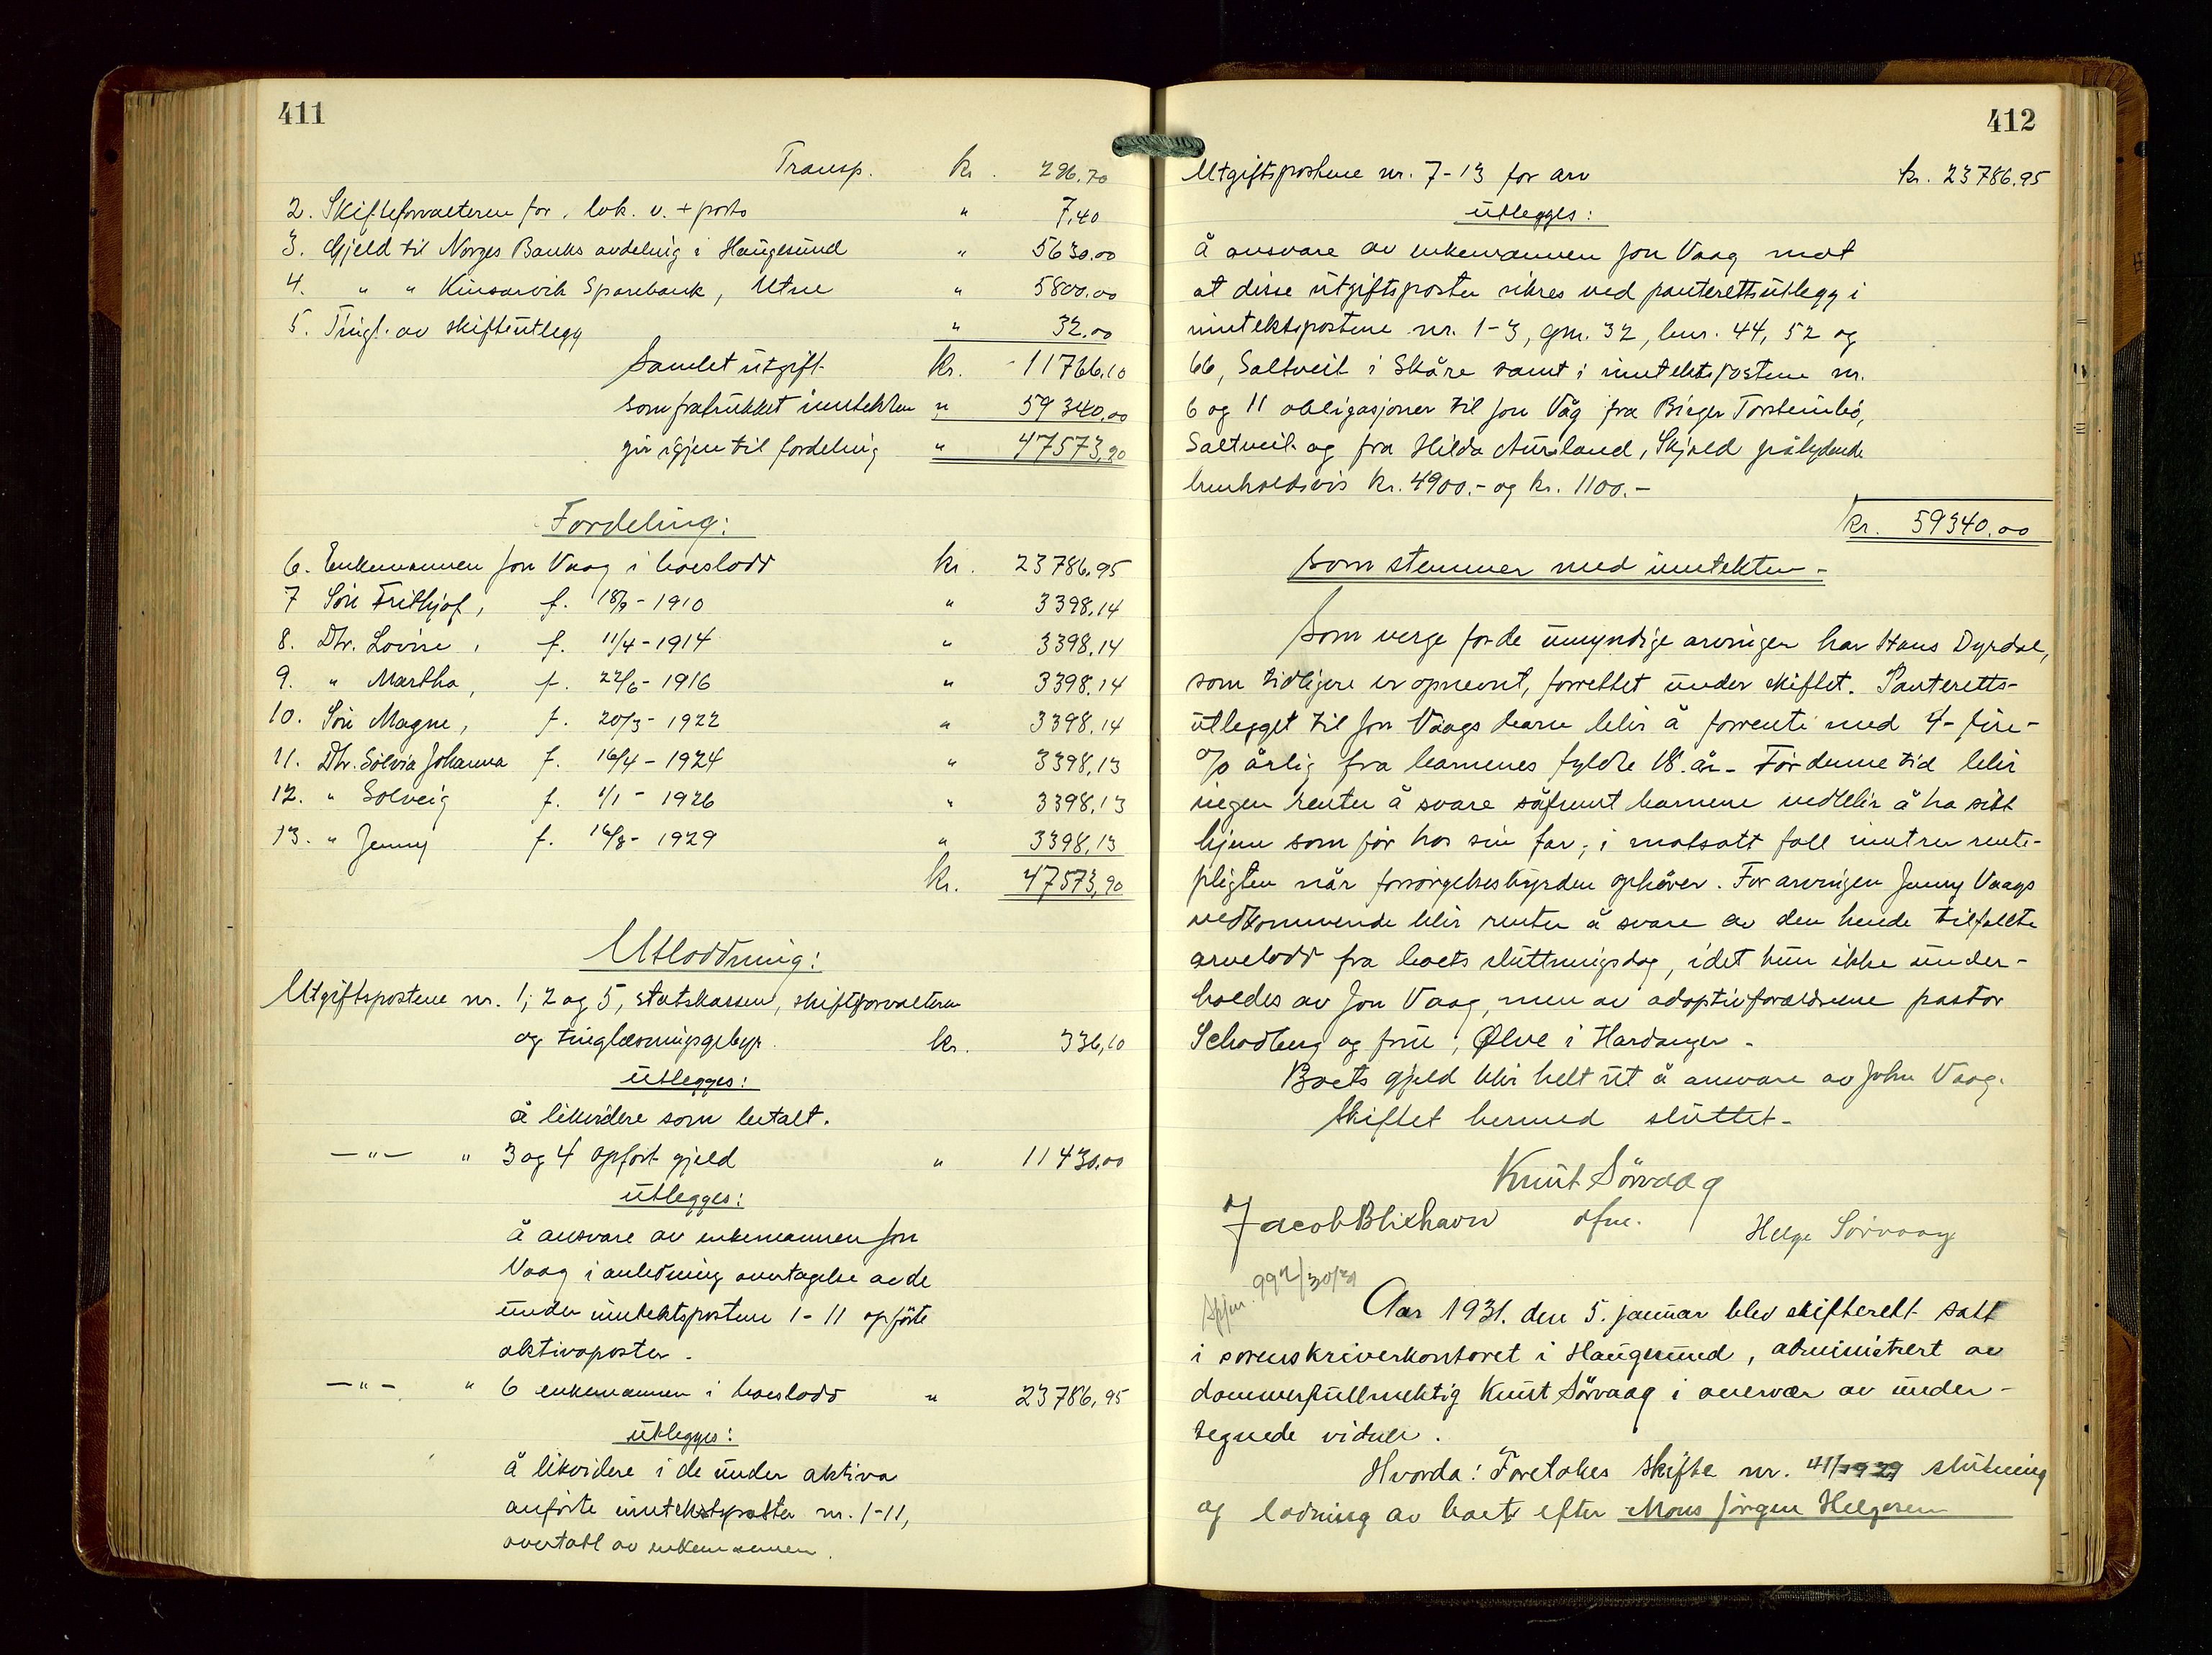 411
Transp. kr. 296.70
2. Skifteforvalteren for, lok. v. + porto " 7,40
3. Gjeld til Norges Banks avdeling i Haugesund " 5630.00
4. " " Kinsarvik Sparebank, Utne " 5800.00
5. Tingl. av skifteutlegg " 32.00
Samlet utgift kr. 11766.10
som fratrukket inntekten " 59340.00
gir igjen til fordeling " 47573,90
Fordeling:
6. Enkemannen Jon Vaag i boeslodd kr. 23786,95
7 Søn Frithjof, f. 18/9 - 1910 " 3398,14
8. Dtr. Lovise, f. 11/4 - 1914 " 3398,14
9. " Martha, f. 22/6 - 1916 " 3398,14
10. Søn Magne, f. 20/3 - 1922 " 3398,14
11. Dtr. Solvia Johanna f. 16/4 - 1924 " 3398,13
12. " Solveig f. 1/1 - 1926 " 3398,13
13. " Jenny f. 16/8 - 1929 " 3398,13
kr. 47573,90
Utloddning:
Utgiftspostene nr. 1, 2 og 5, statskassen, skifteforvalteren
og tinglæsningsgebyr. kr. 336,10
utlegges:
å likvidere som betalt.
— " — " 3 og 4 opført gjeld " 11430.00
utlegges:
å ansvare av enkemannen Jon
Vaag i anledning overtagelse av de
under inntektspostene 1 - 11 opførte
aktivaposter.
— " — " 6 enkemannen i boeslodd " 23786,95
utlegges:
å likvidere i de under aktiva
anførte inntektsposter nr. 1-11,
overtatt av enkemannen.
412
Utgiftspostene nr. 7-13 for arv kr. 23786,95
utlegges:
å ansvare av enkemannen Jon Vaag mot
at disse utgiftsposter sikres ved panterettsutlegg i
inntektspostene nr. 1-3, gnr. 32, bnr. 44, 52 og
66, Saltveit i Skåre samt i inntektspostene nr.
6 og 11 obligasjoner til Jon Våg fra Birger Torsteinbø,
Saltveit og fra Hilda Aursland, Skjold pålydende
henholdsvis kr. 4900.- og kr. 1100.-
kr. 59340.00
som stemmer med inntekten -
Som verge for de umyndige arvinger har Hans Dyrdal,
som tidligere er opnevnt, forrettet under skiftet. Panteretts-
utlegget til Jon Vaags barn blir å forrente med 4 - fire -
% årlig fra barnenes fyldte 18. år - Før denne tid blir
ingen renter å svare såfremt barnene vedblir å ha sitt
hjem som før hos sin far; i motsatt fall inntrer rente-
pligten når forsørgelsesbyrden ophører. For arvingen Jenny Vaags
vedkommende blir renter å svare av den hende tilfallte
arvelodd fra boets sluttningsdag, idet hun ikke under-
holdes av Jon Vaag, men av adoptivforældrene pastor
Schodberg og frue, Ølve i Hardanger -
Boets gjeld blir helt ut å ansvare av John Vaag.
Skiftet hermed sluttet -
Knut Sørvaag
Jacob Blixhavn dfm. Helge Sørvaag
992/30/31
Aar 1931. den 5. januar blev skifterett satt
i sorenskriverkontoret i Haugesund, administrert av
dommerfullmektig Knut Sørvaag i overvær av under-
tegnede vidner.
Hvorda: Foretokes skifte nr. 41/1929 slutning
og lodning av boet efter Mons Jørgen Helgesen